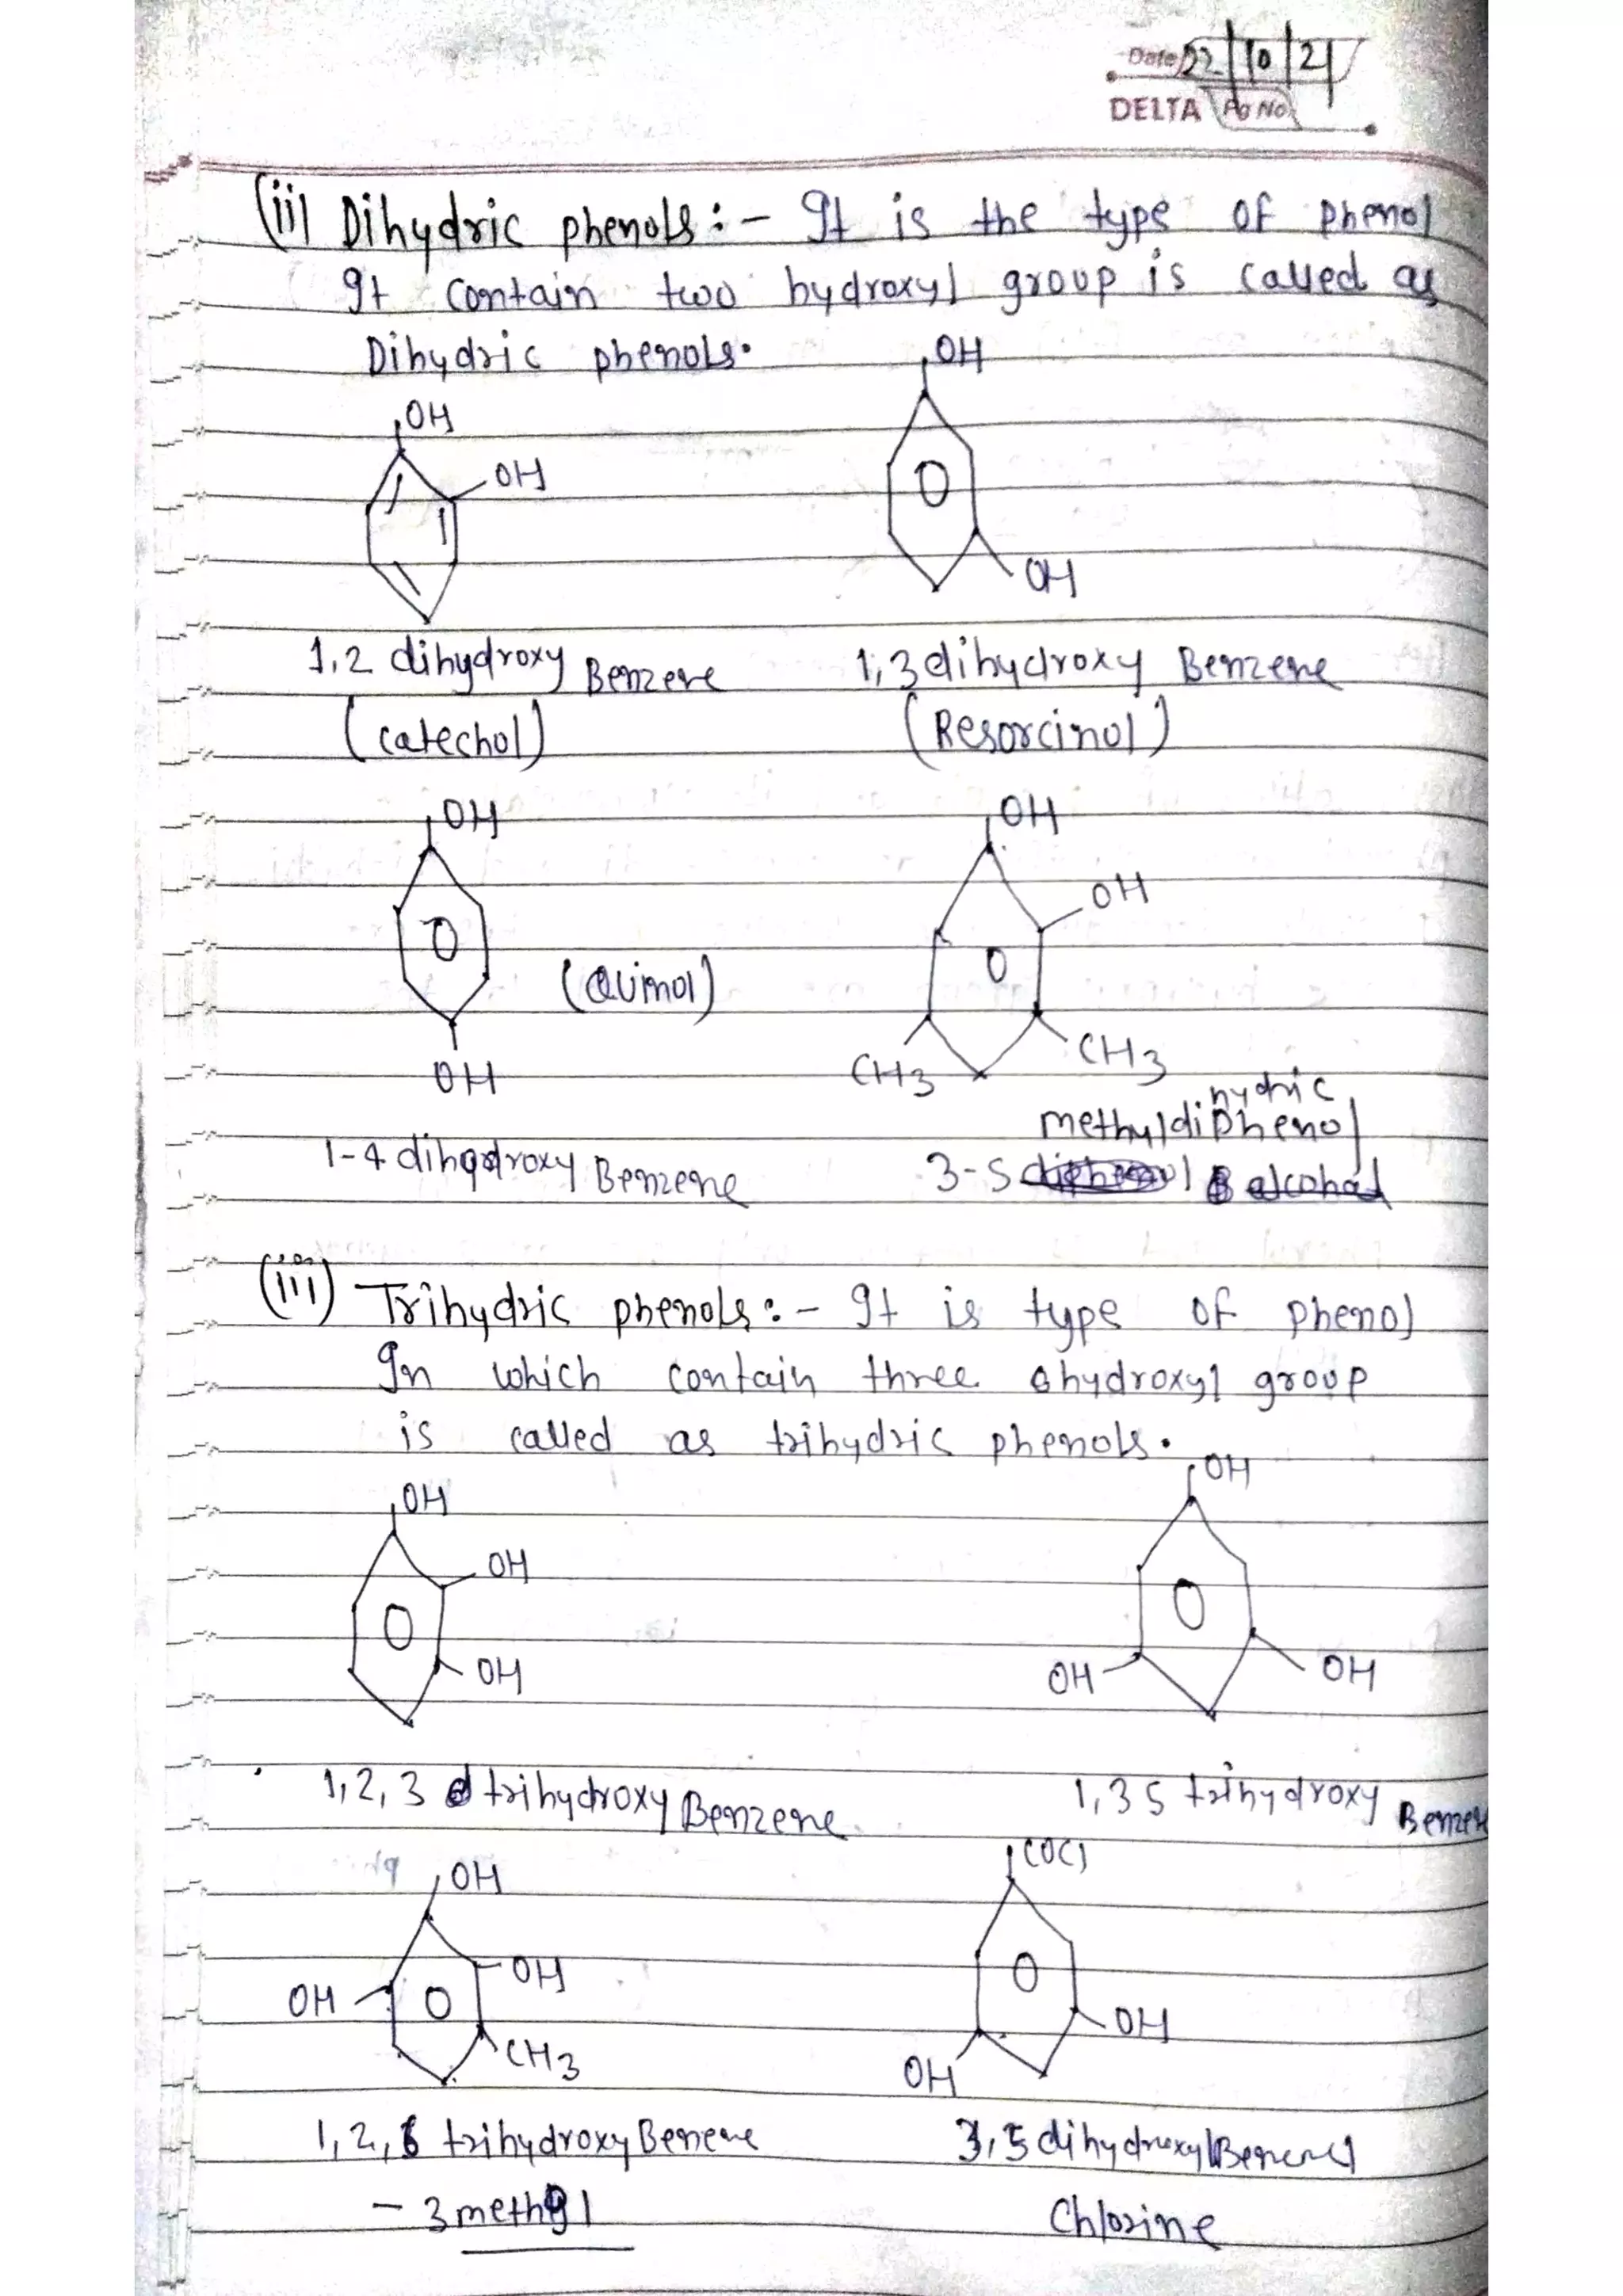 Date 22/10/21
DELTA Pg No.
(ii) Dihydric phenols :- It is the type of phenol
It contain two hydroxyl group is called as
Dihydric phenols.
OH
OH
OH
OH
1,2 dihydroxy Benzene
1,3 dihydroxy Benzene
(catechol)
(Resorcinol)
OH
OH
OH
(Quinol)
CH3
CH3
OH
hydric
methyldiphenol
1-4 dihydroxy Benzene
3-5
(iii) Trihydric phenols :- It is type of phenol
In which contain three hydroxyl group
is called as trihydric phenols.
OH
OH
OH
OH
OH
OH
1,2,3 trihydroxy Benzene
1,3 5 trihydroxy
COCl
OH
OH
OH
OH
CH3
OH
1,2,6 trihydroxy Benene
3,5 dihydroxy
- 3 methyl
Chlorine